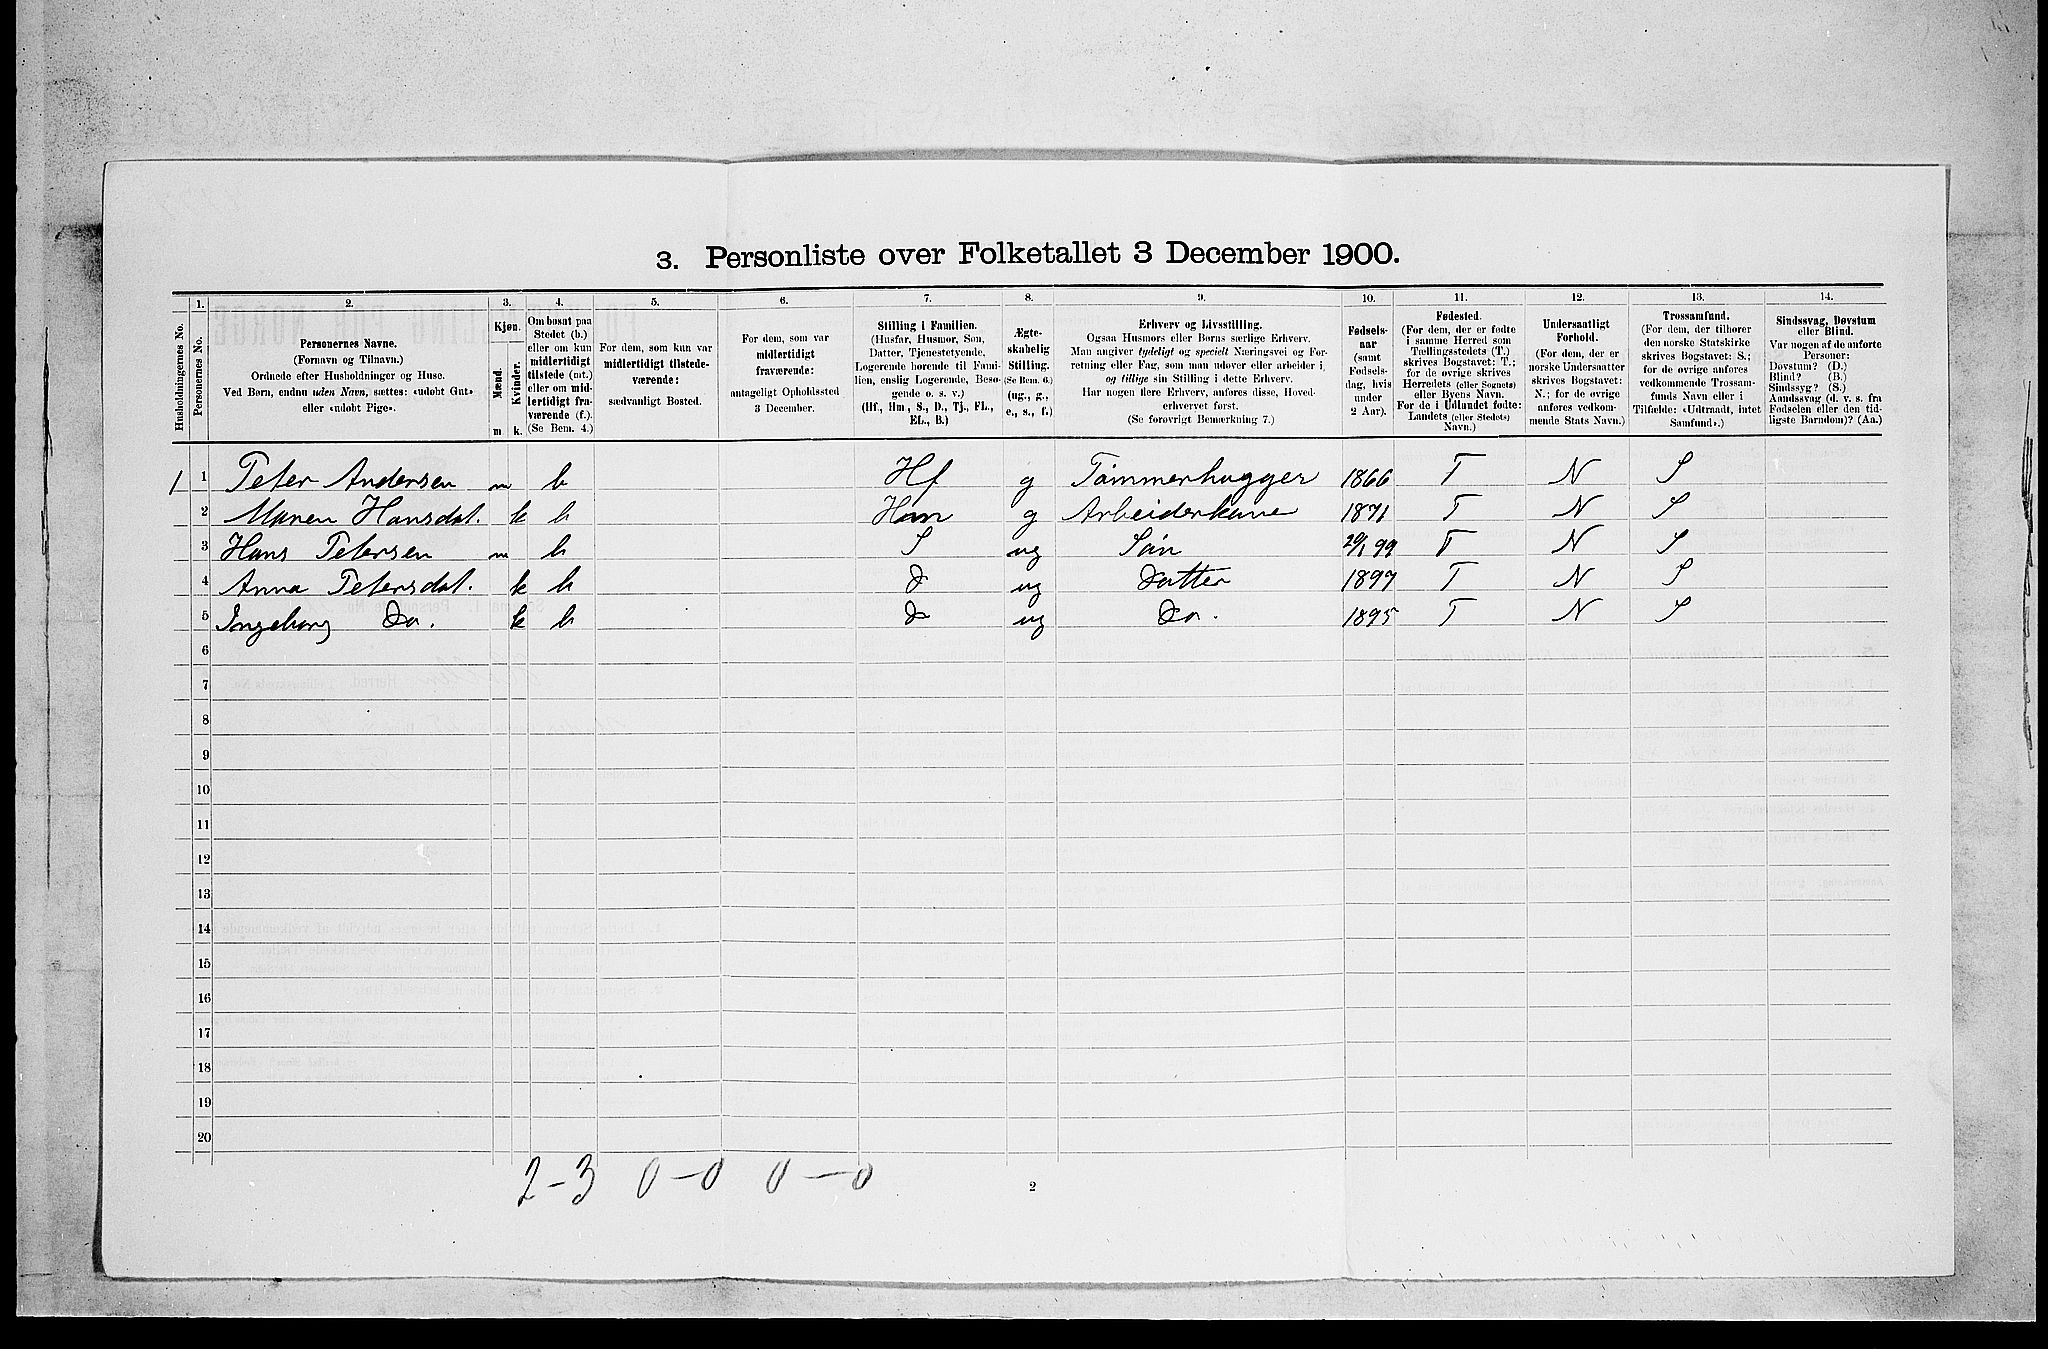 3. Personliste over Folketallet 3 December 1900.
1. 2. 3. 4. 5. 6. 7. 8. 9. 10. 11. 12. 13. 14.
Husholdningernes No.
Personernes No.
Personernes Navne.
(Fornavn og Tilnavn.)
Ordnede efter Husholdninger og Huse.
Ved Børn, endnu uden Navn, sættes: «udøbt Gut»
eller «udøbt Pige».
Kjøn.
Mænd.
Kvinder.
m k.
Om bosat paa
Stedet (b.)
eller om kun
midlertidigt
tilstede (mt.)
eller om mid-
lertidigt fra-
værende (f.).
(Se Bem. 4.)
For dem, som kun var
midlertidigt tilstede-
værende:
sædvanligt Bosted.
For dem, som var
midlertidigt
fraværende:
antageligt Opholdssted
3 December.
Stilling i Familien.
(Husfar, Husmor, Søn,
Datter, Tjenestetyende,
Logerende hørende til Fami-
lien, enslig Logerende, Besø-
gende o. s. v.)
(Hf., Hm., S., D., Tj., FL.,
EL., B.)
Ægte-
skabelig
Stilling.
(Se Bem. 6.)
(ug., g.,
e., s., f.)
Erhverv og Livsstilling.
Ogsaa Husmors eller Børns særlige Erhverv.
Man angiver tydeligt og specielt Næringsvei og For-
retning eller Fag, som man udøver eller arbeider i,
og tillige sin Stilling i dette Erhverv.
Har nogen flere Erhverv, anføres disse, Hoved-
erhvervet først.
(Se forøvrigt Bemærkning 7.)
Fødsels-
aar
(samt
Fødsels-
dag, hvis
under
2 Aar).
Fødested.
(For dem, der er fødte
i samme Herred som
Tællingsstedets (T.)
skrives Bogstavet: T.;
for de øvrige skrives
Herredets (eller Sognets)
eller Byens Navn.
For de i Udlandet fødte:
Landets (eller Stedets)
Navn.)
Undersaatligt
Forhold.
(For dem, der er
norske Undersaatter
skrives Bogstavet:
N.; for de øvrige
anføres vedkom-
mende Stats Navn.)
Trossamfund.
(For dem, der tilhører
den norske Statskirke
skrives Bogstavet: S.;
for de øvrige anføres
vedkommende Trossam-
funds Navn eller i
Tilfælde: «Udtraadt, intet
Samfund».)
Sindssvag, Døvstum
eller Blind.
Var nogen af de anførte
Personer:
Døvstum? (D.)
Blind? (B.)
Sindssyg? (S.)
Aandssvag (d. v. s. fra
Fødselen eller den tid-
ligste Barndom)? (Aa.)
1 1 Peter Andersen m b Hf g Tømmerhugger 1866 T N S
2 Maren Hansdat. k b Hm g Arbeiderkone 1871 T N S
3 Hans Petersen m b S ug Søn 29/1 99 T N S
4 Anna Petersdat. k b d ug Datter 1897 T N S
5 Ingeborg Do. k b d ug Do. 1895 T N S
6
7
8
9
10
11
12
13
14
15
16
17
18
19
20
2-3 0-0 0-0
2